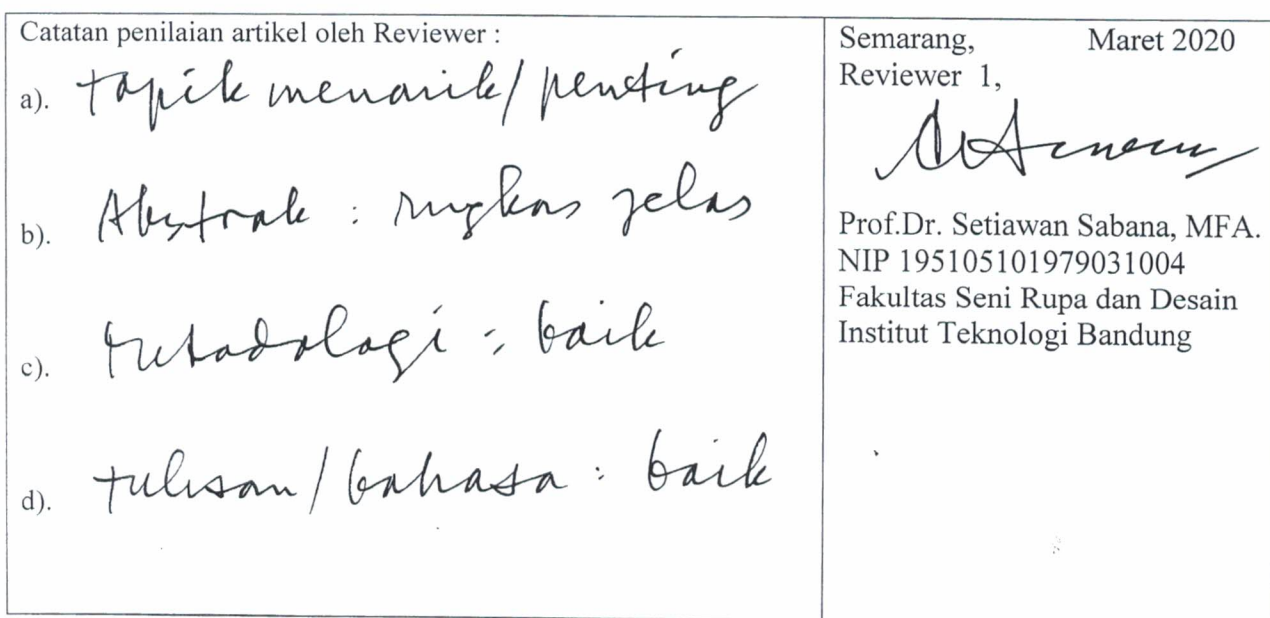 Catatan penilaian artikel oleh Reviewer :
a). topik menarik/penting
b). Abstrak : ringkas jelas
c). metodologi : baik
d). tulisan/bahasa : baik
Semarang, Maret 2020
Reviewer 1,
Prof.Dr. Setiawan Sabana, MFA.
NIP 195105101979031004
Fakultas Seni Rupa dan Desain
Institut Teknologi Bandung